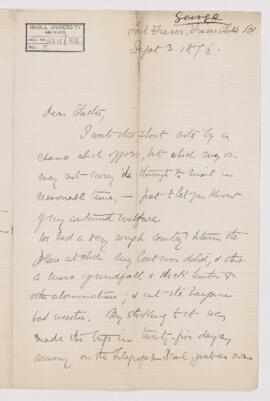 George
Fort Fraser, Fraser Lake B.C.
Sept 3. 1876.
McGILL UNIVERSITY
ARCHIVES
ACC. NO. 2211/52
REF. 5
Dear Father,
I write this short note by a
chance which offers, but which may or
may not carry it through to mail in
reasonable time, — just to let you know
of my continued welfare.
We had a very rough country between the
place at which my last was dated, & this
a mass of windfall & thick timber &
other abominations; & into the bargain
bad weather. By sticking to it we
made the trip in twenty-five days,
arriving on the Telegraph trail, just as our